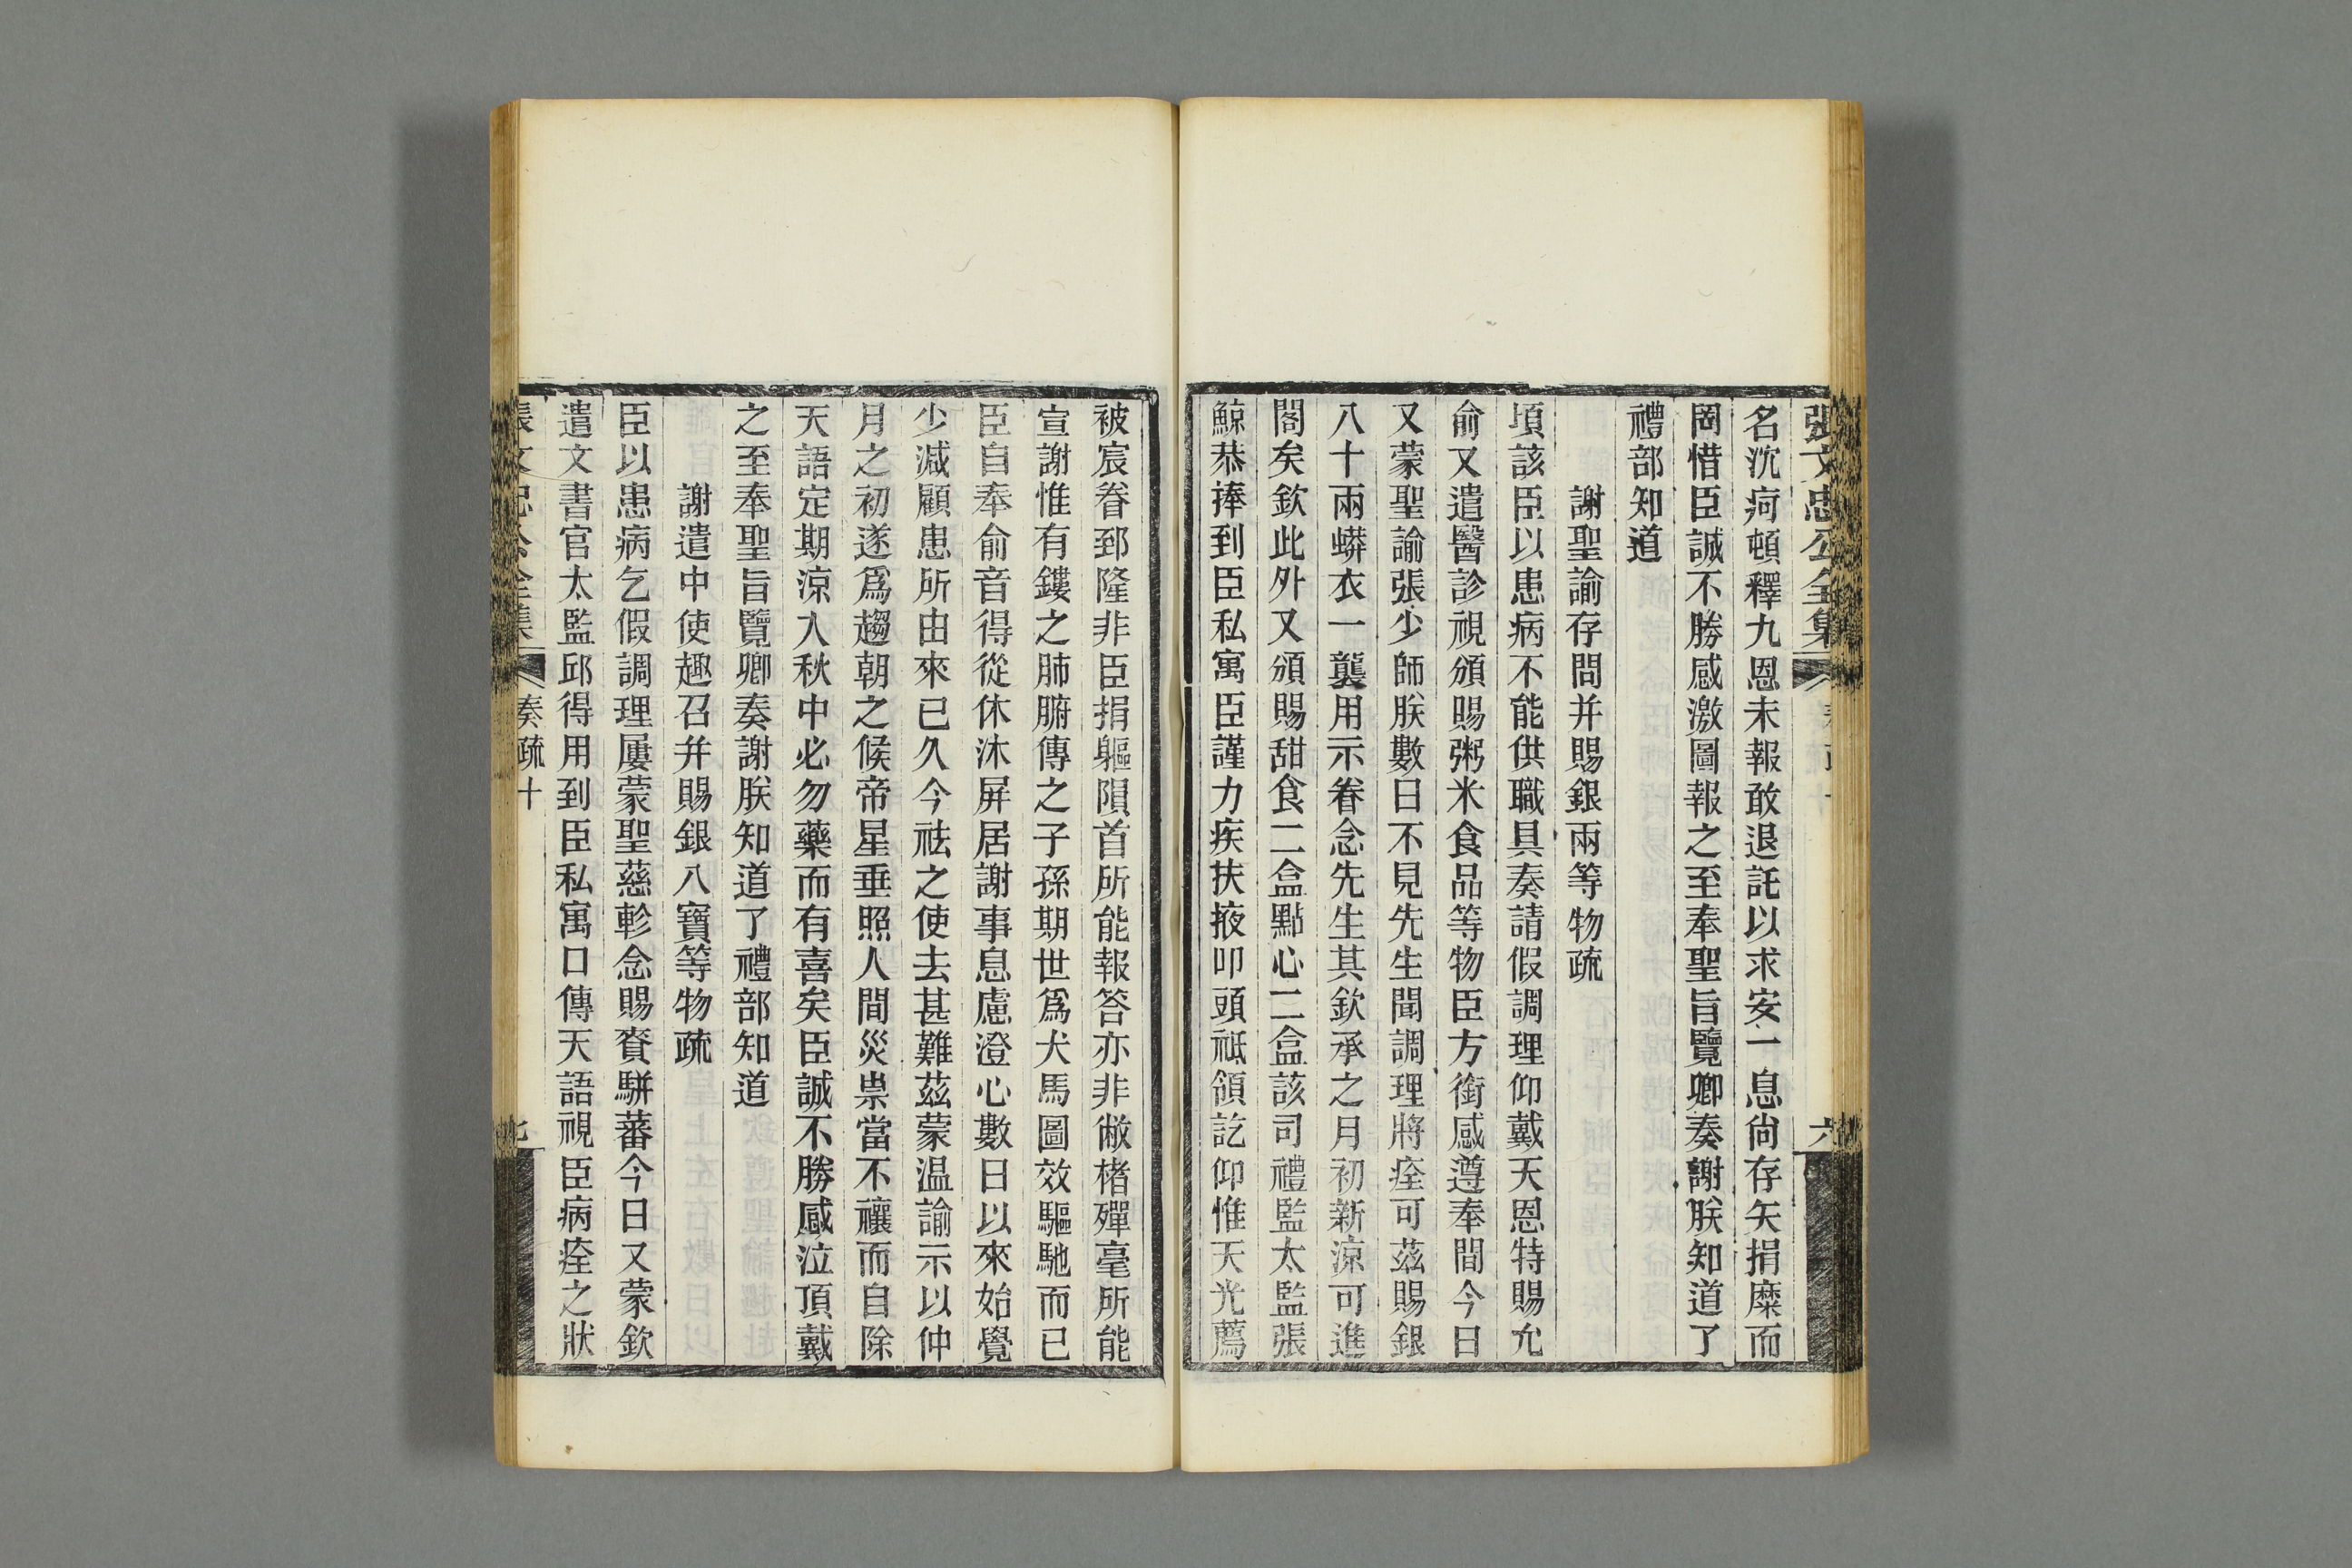 張文忠公全集 奏疏十 六
名沈疴頓釋九恩未報敢退託以求安一息尙存矢捐糜而
罔惜臣誠不勝感激圖報之至奉聖旨覽卿奏謝朕知道了
禮部知道
謝聖諭存問幷賜銀兩等物疏
頃該臣以患病不能供職具奏請假調理仰戴天恩特賜允
俞又遣醫診視頒賜粥米食品等物臣方銜感遵奉間今日
又蒙聖諭張少師朕數日不見先生聞調理將痊可茲賜銀
八十兩蟒衣一襲用示眷念先生其欽承之月初新涼可進
閣矣欽此外又頒賜甜食二盒點心二盒該司禮監太監張
鯨恭捧到臣私寓臣謹力疾扶掖叩頭祗領訖仰惟天光薦
被宸眷郅隆非臣捐軀隕首所能報答亦非敝楮殫毫所能
宣謝惟有鏤之肺腑傳之子孫期世爲犬馬圖效驅馳而已
臣自奉俞音得從休沐屏居謝事息慮澄心數日以來始覺
少減顧患所由來已久今祛之使去甚難茲蒙温諭示以仲
月之初遂爲趨朝之候帝星垂照人間災祟當不禳而自除
天語定期涼入秋中必勿藥而有喜矣臣誠不勝感泣頂戴
之至奉聖旨覽卿奏謝朕知道了禮部知道
謝遣中使趣召幷賜銀八寶等物疏
臣以患病乞假調理屢蒙聖慈軫念賜賚駢蕃今日又蒙欽
遣文書官太監邱得用到臣私寓口傳天語視臣病痊之狀
張文忠公全集 奏疏十 七